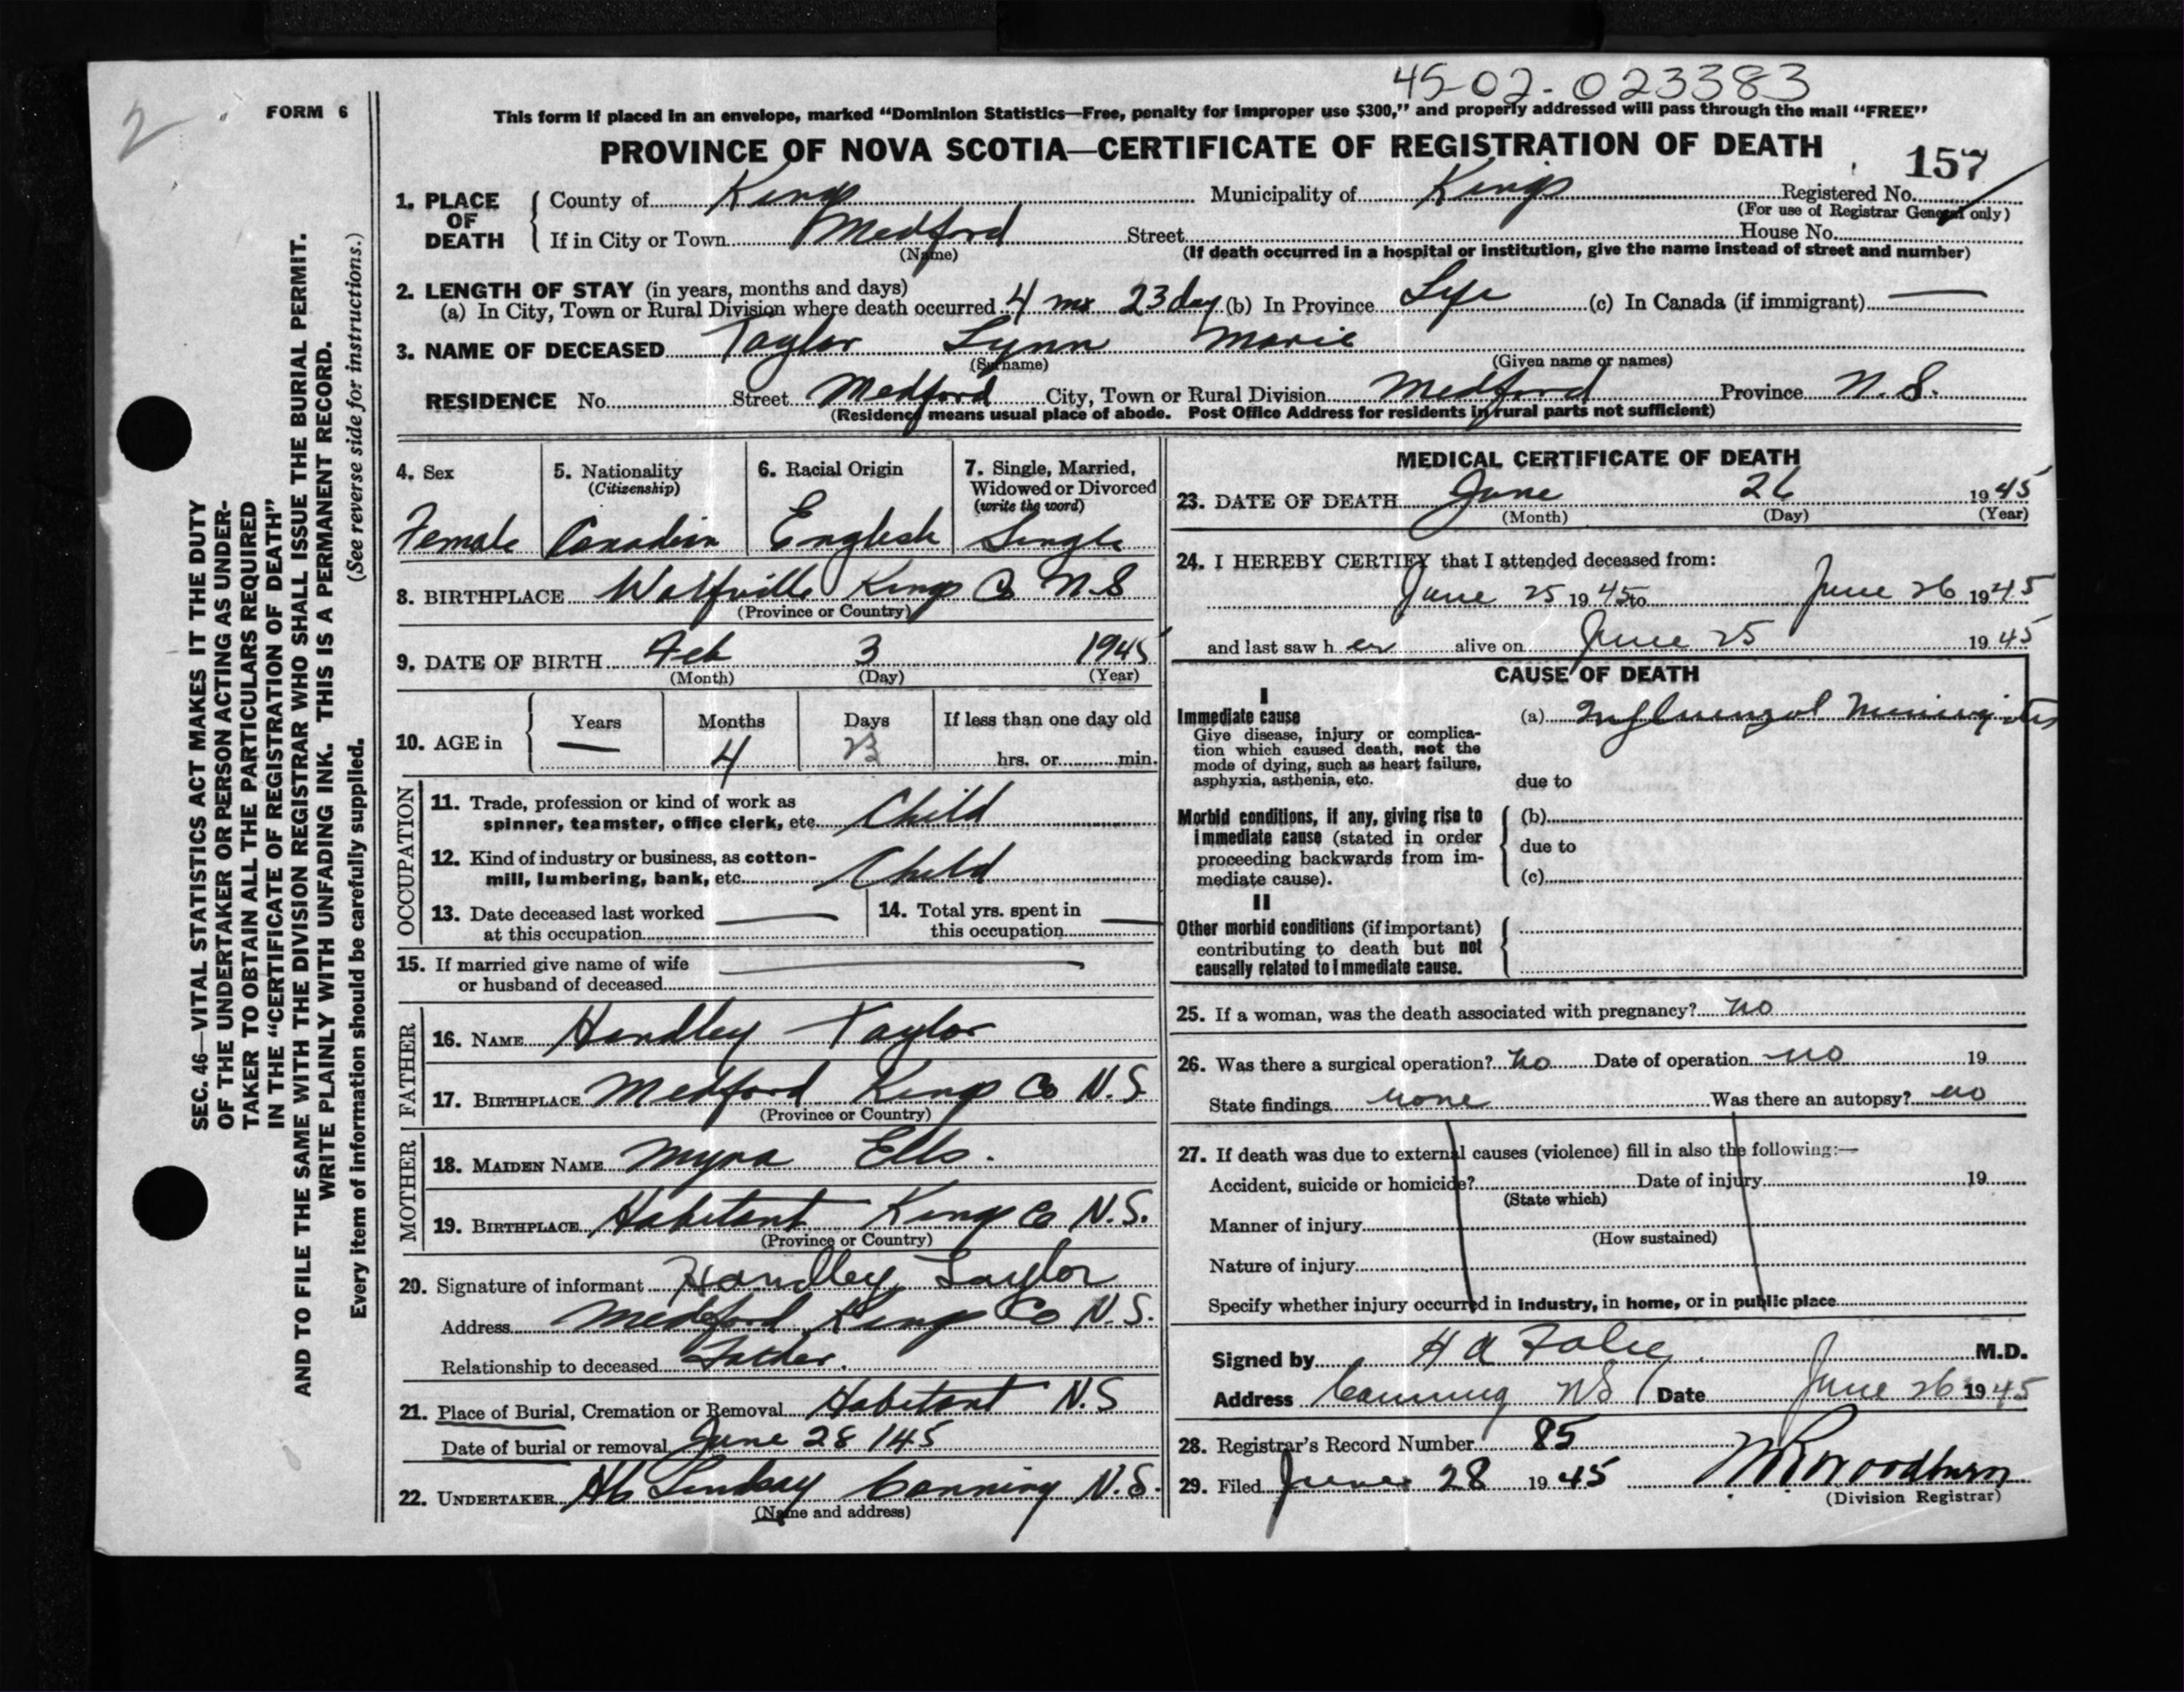 45-02-023383
2
FORM 6
This form if placed in an envelope, marked “Dominion Statistics—Free, penalty for improper use $300,” and properly addressed will pass through the mail “FREE”
PROVINCE OF NOVA SCOTIA—CERTIFICATE OF REGISTRATION OF DEATH
157
1. PLACE OF DEATH
County of Kings Municipality of Kings Registered No.
(For use of Registrar General only)
If in City or Town Medford Street House No.
(Name) (If death occurred in a hospital or institution, give the name instead of street and number)
2. LENGTH OF STAY (in years, months and days)
(a) In City, Town or Rural Division where death occurred 4 ms 23 day (b) In Province Life (c) In Canada (if immigrant) —
3. NAME OF DECEASED Taylor Lynn Marie
(Surname) (Given name or names)
RESIDENCE No. Street Medford City, Town or Rural Division Medford Province N.S.
(Residence means usual place of abode. Post Office Address for residents in rural parts not sufficient)
4. Sex
Female
5. Nationality
(Citizenship)
Canadian
6. Racial Origin
English
7. Single, Married,
Widowed or Divorced
(write the word)
Single
8. BIRTHPLACE Wolfville Kings Co N.S
(Province or Country)
9. DATE OF BIRTH Feb 3 1945
(Month) (Day) (Year)
10. AGE in
Years Months Days If less than one day old
— 4 23 hrs. or min.
OCCUPATION
11. Trade, profession or kind of work as
spinner, teamster, office clerk, etc. Child
12. Kind of industry or business, as cotton-
mill, lumbering, bank, etc. Child
13. Date deceased last worked —
at this occupation
14. Total yrs. spent in —
this occupation
15. If married give name of wife —
or husband of deceased
FATHER
16. NAME Handley Taylor
17. BIRTHPLACE Medford Kings Co N.S.
(Province or Country)
MOTHER
18. MAIDEN NAME Myra Ells.
19. BIRTHPLACE Habitant Kings Co N.S.
(Province or Country)
20. Signature of informant Handley Taylor
Address Medford Kings Co N.S.
Relationship to deceased Father.
21. Place of Burial, Cremation or Removal Habitant N.S
Date of burial or removal June 28 /45
22. UNDERTAKER Lindsay Canning N.S.
(Name and address)
MEDICAL CERTIFICATE OF DEATH
23. DATE OF DEATH June 26 1945
(Month) (Day) (Year)
24. I HEREBY CERTIFY that I attended deceased from:
June 25 1945 to June 26 1945
and last saw her alive on June 25 1945
CAUSE OF DEATH
I
Immediate cause
Give disease, injury or complica-
tion which caused death, not the
mode of dying, such as heart failure,
asphyxia, asthenia, etc.
(a) Influenzal Meningitis
due to
Morbid conditions, if any, giving rise to
immediate cause (stated in order
proceeding backwards from im-
mediate cause).
(b)
due to
(c)
II
Other morbid conditions (if important)
contributing to death but not
causally related to immediate cause.
25. If a woman, was the death associated with pregnancy? no
26. Was there a surgical operation? no Date of operation no 19
State findings none Was there an autopsy? no
27. If death was due to external causes (violence) fill in also the following:—
Accident, suicide or homicide? Date of injury 19
(State which)
Manner of injury
(How sustained)
Nature of injury
Specify whether injury occurred in industry, in home, or in public place
Signed by H A M.D.
Address Canning NS Date June 26 1945
28. Registrar's Record Number 85
29. Filed June 28 1945 Woodburn
(Division Registrar)
SEC. 46—VITAL STATISTICS ACT MAKES IT THE DUTY
OF THE UNDERTAKER OR PERSON ACTING AS UNDER-
TAKER TO OBTAIN ALL THE PARTICULARS REQUIRED
IN THE “CERTIFICATE OF REGISTRATION OF DEATH”
AND TO FILE THE SAME WITH THE DIVISION REGISTRAR WHO SHALL ISSUE THE BURIAL PERMIT.
WRITE PLAINLY WITH UNFADING INK. THIS IS A PERMANENT RECORD.
Every item of information should be carefully supplied. (See reverse side for instructions.)